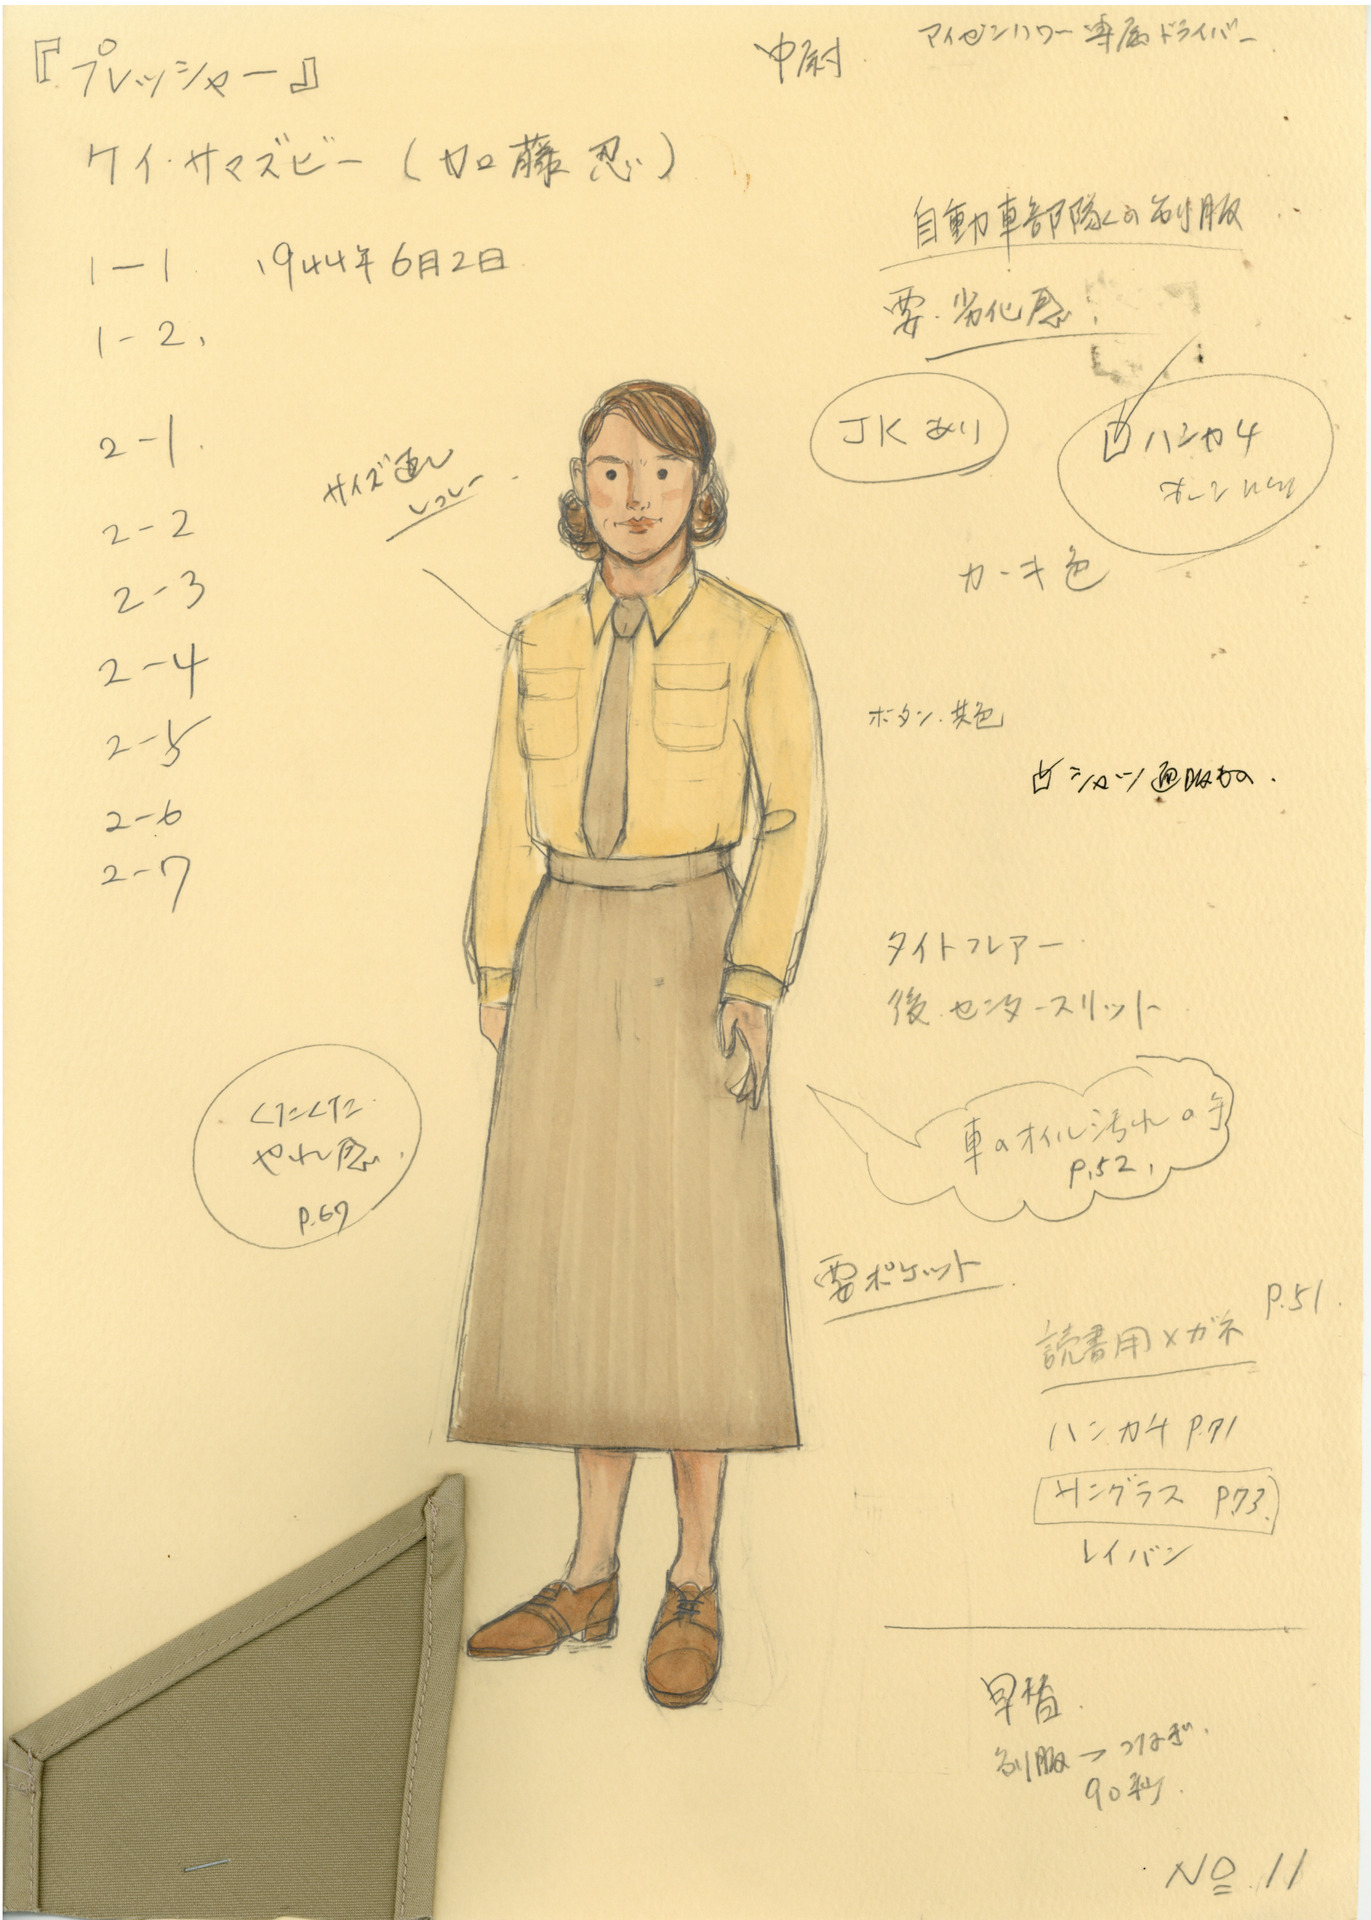 『プレッシャー』
中尉
アイゼンハワー専属ドライバー
ケイ・サマズビー(加藤忍)
1-1 1944年6月2日
1-2.
2-1.
2-2
2-3
2-4
2-5
2-6
2-7
自動車部隊 の制服
要.劣化感.
JKあり
白ハンカチ
サイズ直し
カーキ色
ボタン.共色
白シャツ通販もの.
タイトフレアー
後.センタースリット
くたくた
やれ感.
P.67
車のオイル汚れの手
P.52.
要ポケット
読書用メガネ P.51.
ハンカチ P.71
サングラス P.73.
レイバン
早替.
制服→つなぎ.
90秒.
No. 11